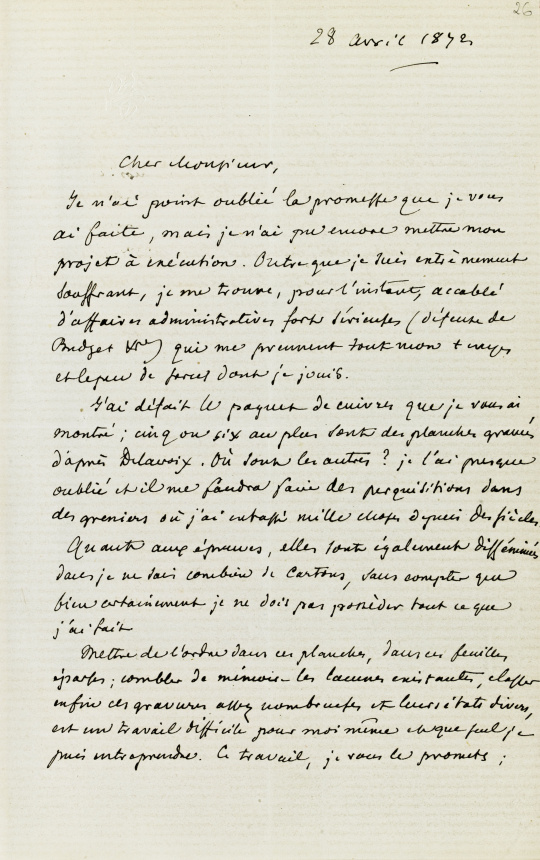 26
28 avril 1872
Cher Monsieur,
Je n'ai point oublié la promesse que je vous
ai faite, mais je n'ai pu encore mettre mon
projet à exécution. Outre que je suis extrèmement
souffrant, je me trouve, pour l'instant, accablé
d'affaires administratives fort sérieuses (défense de
Budget &ca) qui me prennent tout mon temps
et le peu de forces dont je jouis.
J'ai défait le paquet de cuivres que je vous ai
montré ; cinq ou six au plus sont des planches gravées
d'après Delacroix. Où sont les autres ? je l'ai presque
oublié et il me faudra faire des perquisitions dans
des greniers où j'ai entassé mille choses depuis des siècles
Quant aux épreuves, elles sont également disséminées
dans je ne sais combien de cartons, sans compter que
bien certainement je ne dois pas posséder tout ce que
j'ai fait
Mettre de l'ordre dans ces planches, dans ces feuilles
éparses ; combler de mémoire les lacunes existantes, classer
enfin ces gravures assez nombreuses et leurs états divers,
est un travail difficile pour moi même et que seul je
puis entreprendre. Ce travail, je vous le promets ;